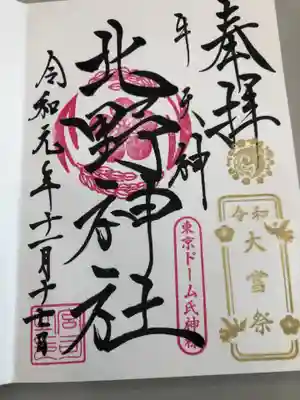 奉拝
牛天神
北野神社
令和元年十一月十七日
東京ドーム氏神様
令和
大嘗祭